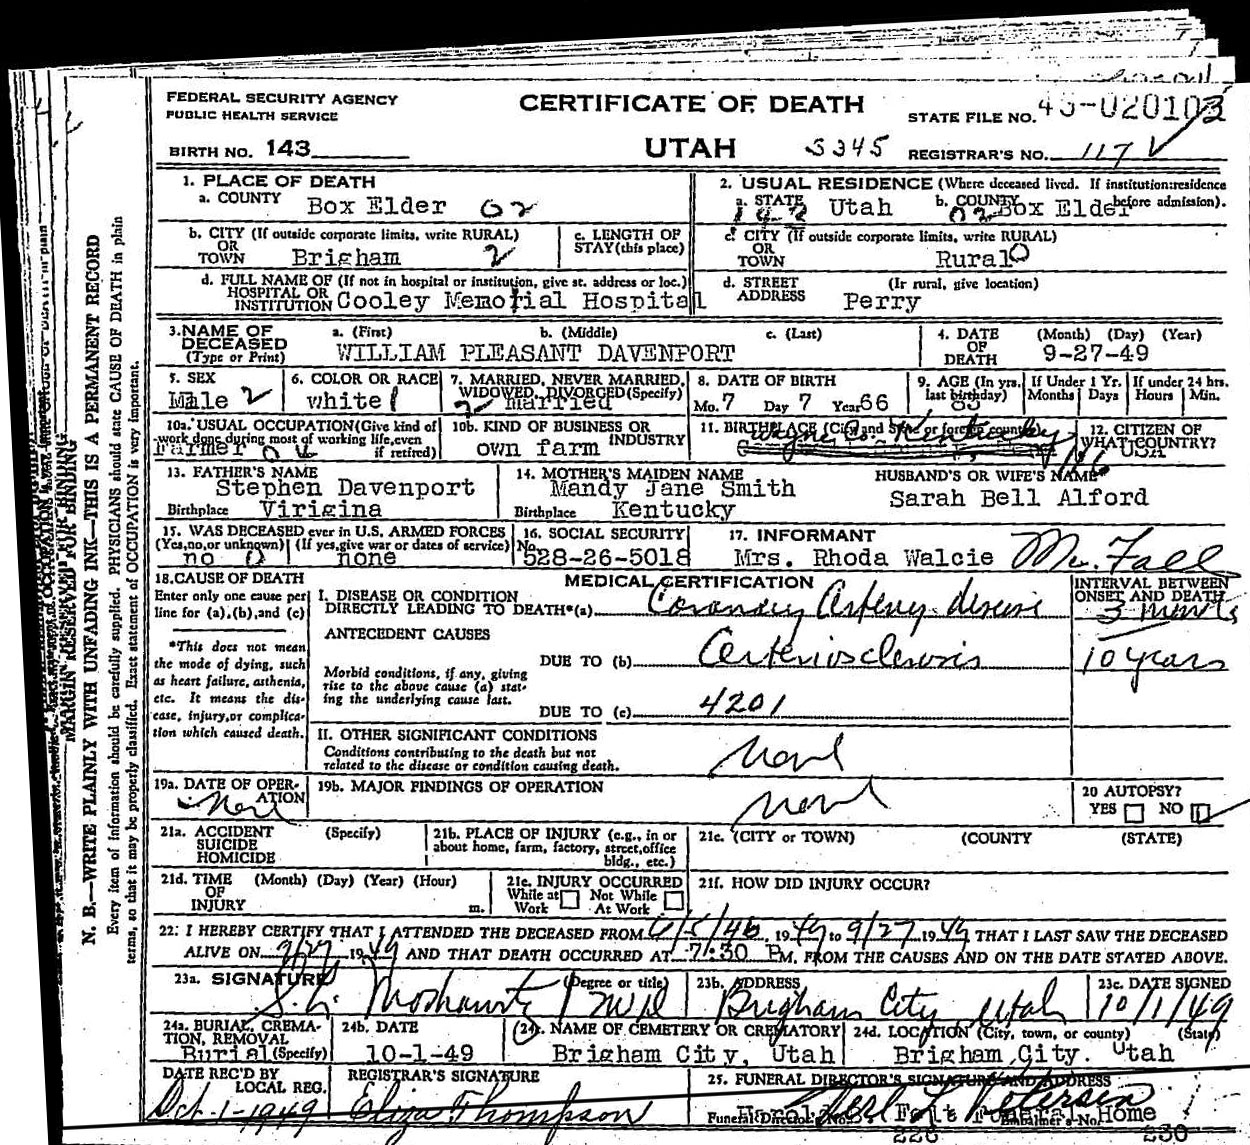 FEDERAL SECURITY AGENCY
PUBLIC HEALTH SERVICE
CERTIFICATE OF DEATH
STATE FILE NO.
BIRTH NO. 143
UTAH 3345 REGISTRAR'S NO. 117
1. PLACE OF DEATH
a. COUNTY Box Elder 02
2. USUAL RESIDENCE (Where deceased lived. If institution: residence before admission).
a. STATE Utah b. COUNTY 02 Box Elder
b. CITY (If outside corporate limits, write RURAL)
OR
TOWN Brigham 2
c. LENGTH OF STAY (this place)
c. CITY (If outside corporate limits, write RURAL)
OR
TOWN Rural 0
d. FULL NAME OF (If not in hospital or institution, give st. address or loc.)
HOSPITAL OR
INSTITUTION Cooley Memorial Hospital
d. STREET (Ir rural, give location)
ADDRESS Perry
3. NAME OF DECEASED (Type or Print)
a. (First) b. (Middle) c. (Last)
WILLIAM PLEASANT DAVENPORT
4. DATE OF DEATH (Month) (Day) (Year)
9-27-49
5. SEX
Male 2
6. COLOR OR RACE
white 1
7. MARRIED, NEVER MARRIED, WIDOWED, DIVORCED (Specify)
2 married
8. DATE OF BIRTH
Mo. 7 Day 7 Year 66
9. AGE (In yrs. last birthday)
83
If Under 1 Yr. Months Days
If under 24 hrs. Hours Min.
10a. USUAL OCCUPATION (Give kind of work done during most of working life, even if retired)
Farmer
10b. KIND OF BUSINESS OR INDUSTRY
own farm
11. BIRTHPLACE (City and State or foreign country)
Wayne Co. Kentucky
12. CITIZEN OF WHAT COUNTRY?
USA
13. FATHER'S NAME
Stephen Davenport
Birthplace Virigina
14. MOTHER'S MAIDEN NAME
Mandy Jane Smith
Birthplace Kentucky
HUSBAND'S OR WIFE'S NAME
Sarah Bell Alford
15. WAS DECEASED ever in U.S. ARMED FORCES
(Yes, no, or unknown) (If yes, give war or dates of service)
no 0 none
16. SOCIAL SECURITY No.
528-26-5018
17. INFORMANT
Mrs. Rhoda Walcie
18. CAUSE OF DEATH
Enter only one cause per line for (a), (b), and (c)
*This does not mean the mode of dying, such as heart failure, asthenia, etc. It means the disease, injury, or complication which caused death.
MEDICAL CERTIFICATION
I. DISEASE OR CONDITION
DIRECTLY LEADING TO DEATH*(a) Coronary Artery disease
INTERVAL BETWEEN ONSET AND DEATH
3
ANTECEDENT CAUSES
DUE TO (b) Arteriosclerosis 10 years
Morbid conditions, if any, giving rise to the above cause (a) stating the underlying cause last.
DUE TO (c) 4201
II. OTHER SIGNIFICANT CONDITIONS
Conditions contributing to the death but not related to the disease or condition causing death.
None
19a. DATE OF OPERATION
None
19b. MAJOR FINDINGS OF OPERATION
None
20 AUTOPSY?
YES NO
21a. ACCIDENT SUICIDE HOMICIDE (Specify)
21b. PLACE OF INJURY (e.g., in or about home, farm, factory, street, office bldg., etc.)
21c. (CITY or TOWN) (COUNTY (STATE)
21d. TIME OF INJURY (Month) (Day) (Year) (Hour) m.
21e. INJURY OCCURRED
While at Work Not While At Work
21f. HOW DID INJURY OCCUR?
22. I HEREBY CERTIFY THAT I ATTENDED THE DECEASED FROM 6/5/46, 1949 to 9/27 1949 THAT I LAST SAW THE DECEASED
ALIVE ON 9/27 1949 AND THAT DEATH OCCURRED AT 7:30 P M. FROM THE CAUSES AND ON THE DATE STATED ABOVE.
23a. SIGNATURE (Degree or title)
MD
23b. ADDRESS
Brigham City, Utah
23c. DATE SIGNED
10/1/49
24a. BURIAL, CREMATION, REMOVAL (Specify)
Burial
24b. DATE
10-1-49
24c. NAME OF CEMETERY OR CREMATORY
Brigham City, Utah
24d. LOCATION (City, town, or county) (State)
Brigham City. Utah
DATE REC'D BY LOCAL REG.
Oct. 1-1949
REGISTRAR'S SIGNATURE
Eliza Thompson
25. FUNERAL DIRECTOR'S SIGNATURE AND ADDRESS
Funeral Director's No. Embalmer's No. Home
N. B.—WRITE PLAINLY WITH UNFADING INK—THIS IS A PERMANENT RECORD
Every item of information should be carefully supplied. PHYSICIANS should state CAUSE OF DEATH in plain
terms, so that it may be properly classified. Exact statement of OCCUPATION is very important.
MARGIN RESERVED FOR BINDING